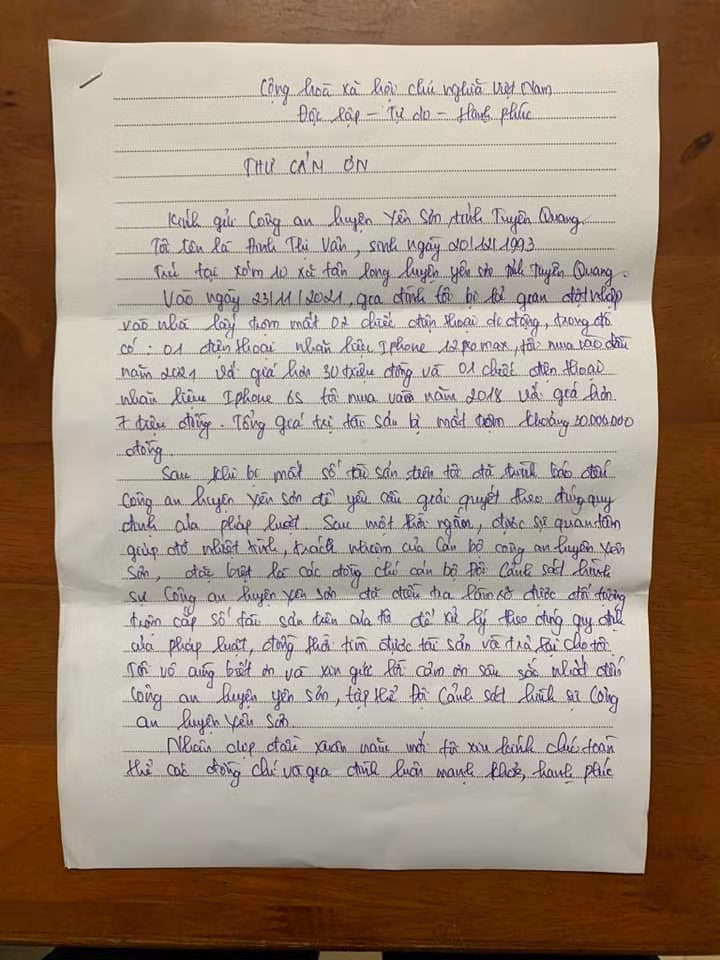 Cộng hoà xã hội chủ nghĩa Việt Nam
Độc lập - Tự do - Hạnh phúc
THƯ CẢM ƠN
Kính gửi Công an huyện Yên Sơn, tỉnh Tuyên Quang
Tôi tên là Đinh Thị Vân, sinh ngày 20/12/1993
Trú tại xóm 10 xã tân long huyện yên sơn tỉnh Tuyên Quang.
Vào ngày 23/11/2021, gia đình tôi bị kẻ gian đột nhập
vào nhà lấy trộm mất 02 chiếc điện thoại di động, trong đó
có: 01 điện thoại nhãn hiệu Iphone 12 promax, tôi mua vào đầu
năm 2021 với giá hơn 30 triệu đồng và 01 chiếc điện thoại
nhãn hiệu Iphone 6s tôi mua vào năm 2018 với giá hơn
7 triệu đồng. Tổng giá trị tài sản bị mất trộm khoảng 30.000.000
đồng.
Sau khi bị mất số tài sản trên tôi đã trình báo đến
Công an huyện Yên Sơn để yêu cầu giải quyết theo đúng quy
định của pháp luật. Sau một thời ngắm, được sự quan tâm
giúp đỡ nhiệt tình, trách nhiệm của Cán bộ công an huyện Yên
Sơn, đặc biệt là các đồng chí cán bộ Đội Cảnh sát hình
sự Công an huyện yên sơn đã điều tra làm rõ được đối tượng
trộm cắp số tài sản trên của tôi để xử lý theo đúng quy định
của pháp luật, đồng thời tìm được tài sản và trả lại cho tôi.
Tôi vô cùng biết ơn và xin gửi lời cảm ơn sâu sắc nhất đến
Công an huyện yên sơn, tập thể Đội Cảnh sát hình sự Công
an huyện Yên Sơn.
Nhân dịp đầu xuân năm mới tôi xin kính chúc toàn
thể các đồng chí và gia đình luôn mạnh khoẻ, hạnh phúc